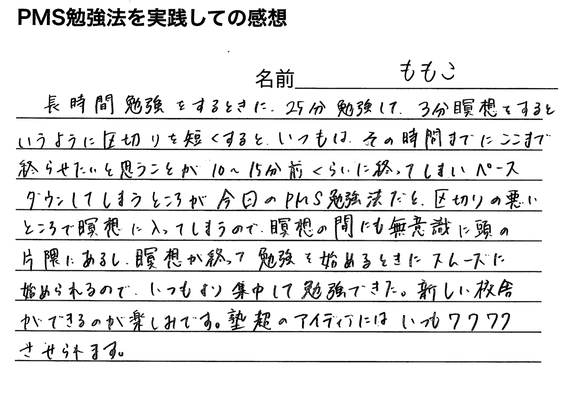 PMS勉強法を実践しての感想
名前 ももこ
長時間勉強をするときに、25分勉強して、3分瞑想をすると
いうように区切りを短くすると、いつもは、その時間までにここまで
終らせたいと思うことが10〜15分前くらいに終ってしまいペース
ダウンしてしまうところが今回のPMS勉強法だと、区切りの悪い
ところで瞑想に入ってしまうので、瞑想の間にも無意識に頭の
片隅にあるし、瞑想が終って勉強を始めるときにスムーズに
始められるので、いつもより集中して勉強できた。新しい校舎
ができるのが楽しみです。塾超のアイディアにはいつもワクワク
させられます。